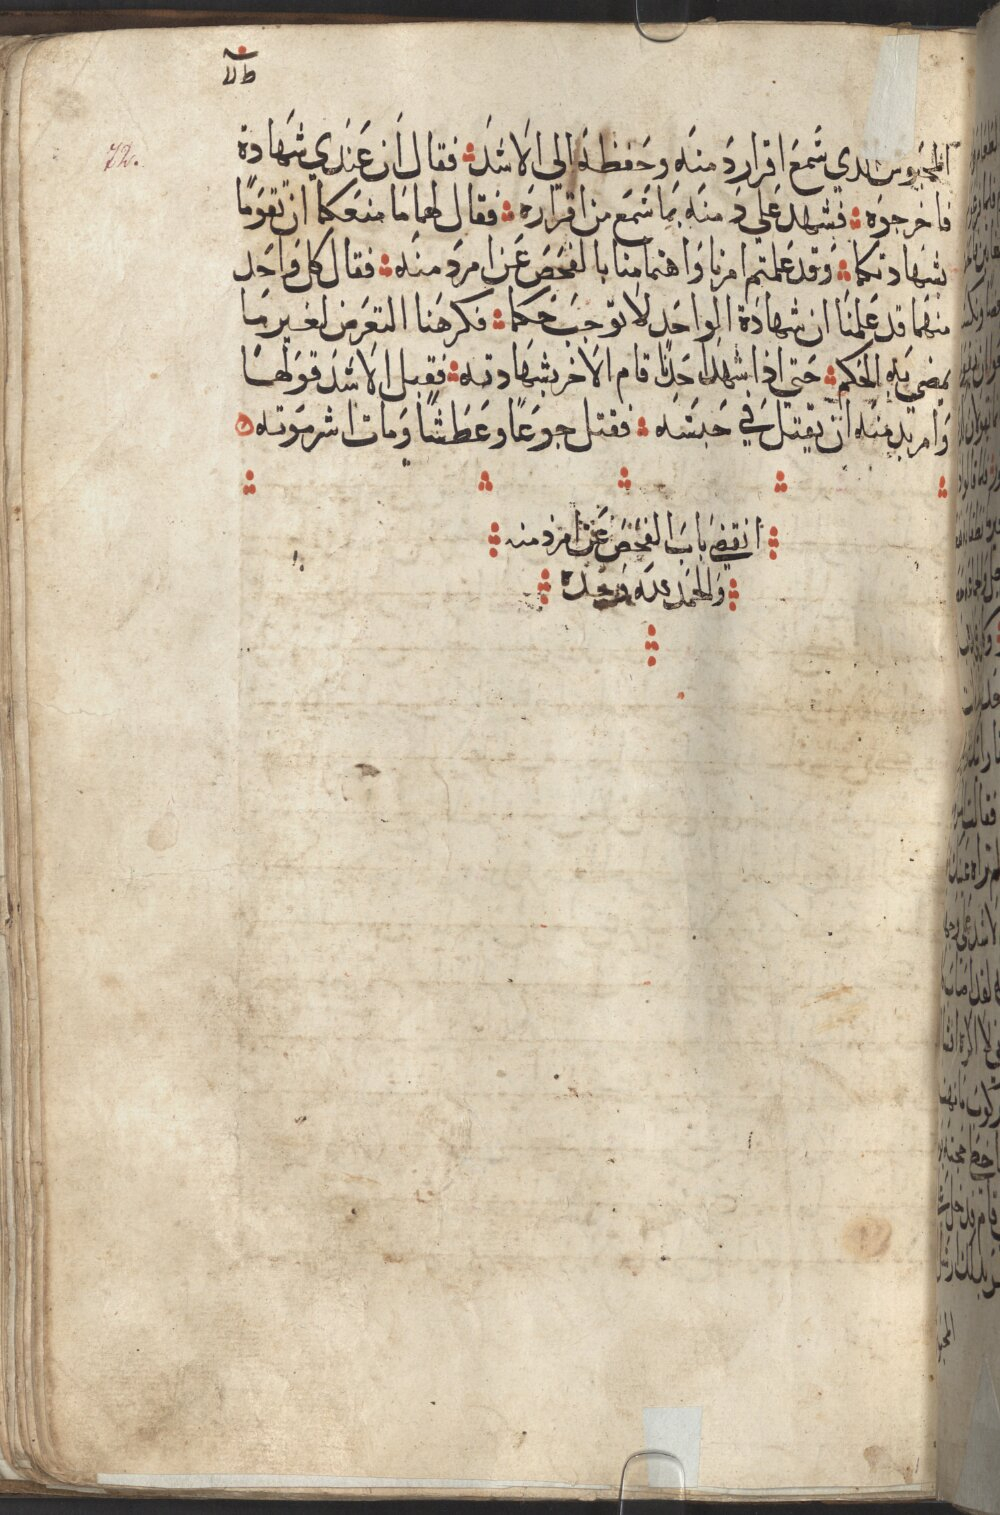 72.
المحبوس الدي سمع اقرار دمنه وحفظه الي الاسد فقال ان عندي شهادة
فاخرجوه فشهد علي دمنه بما سمع من اقراره فقال لهما ما منعكما ان تقوما
بشهادتكما وقد علمتم امرنا واهتمامنا بالفحص عن امر دمنه فقال كل واحد
منهما قد علمنا ان شهادة الواحد لا توجب حكما فكرهنا التعرض لغير ما
يمضي به الحكم حتي اذا شهد احدنا قام الاخر بشهادته فقبل الاسد قولهما
وامر بدمنه ان يقتل في حبسه فقتل جوعا وعطشا ومات اشر موته
انقضي باب الفحص عن امر دمنه
والحمد لله وحده